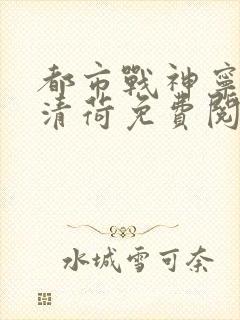 都市戰神寧
清荷免費閱
水城雪可奈